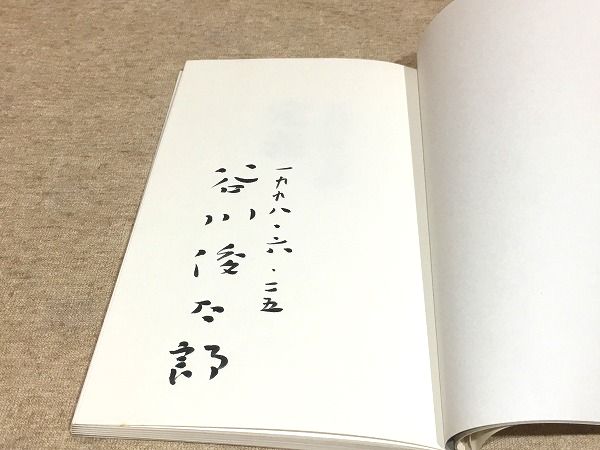 一九九八・六・二五
谷川俊太郎